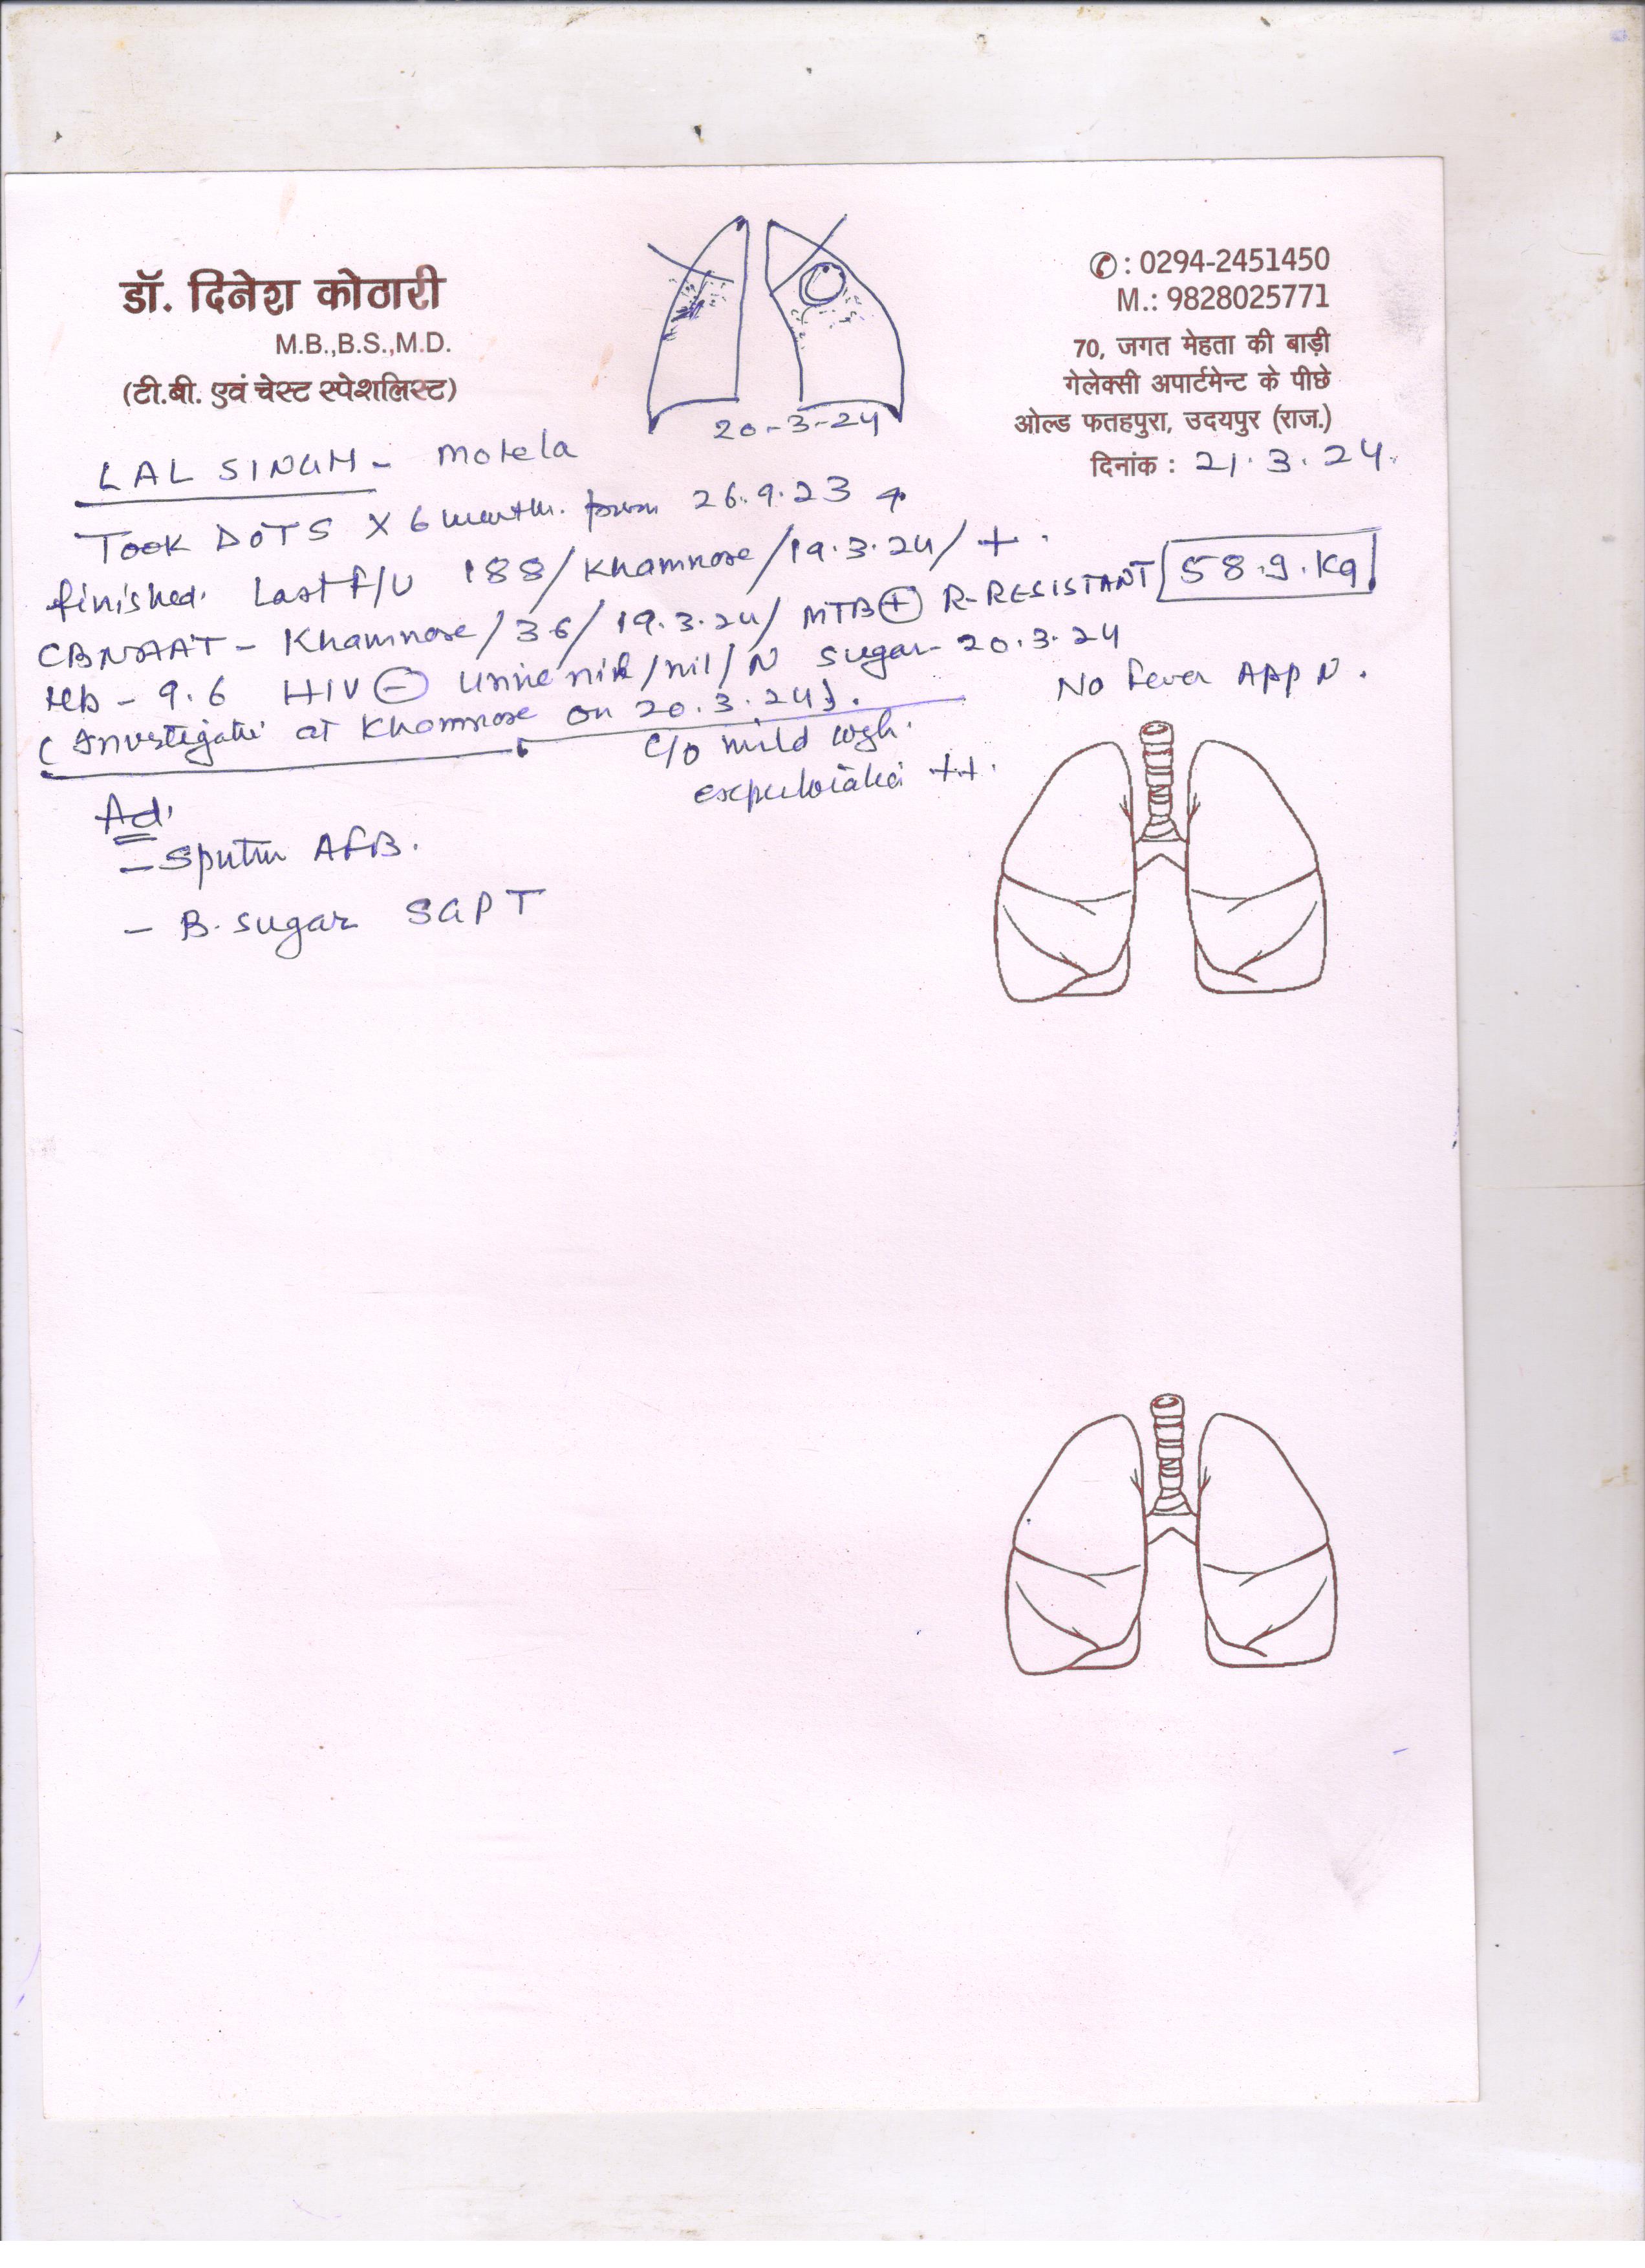 डॉ. दिनेश कोठारी
M.B.,B.S.,M.D.
(टी.बी. एवं चेस्ट स्पेशलिस्ट)
✆ : 0294-2451450
M.: 9828025771
70, जगत मेहता की बाड़ी
गेलेक्सी अपार्टमेन्ट के पीछे
ओल्ड फतहपुरा, उदयपुर (राज.)
दिनांक : 21.3.24.
20-3-24
LAL SINGH - Motela
Took DOTS X 6 month. from 26.9.23
finished. Last F/U 188/Khamnore/19.3.24/+.
CBNAAT - Khamnore/36/19.3.24/ MTB⊕ R-RESISTANT 58.9.Kg
Hb - 9.6 HIV ⊖ Urine nil/nil/N sugar- 20.3.24
(Investigatn at Khamnore on 20.3.24).
No fever App N.
C/O mild cough.
++.
Ad.
- Sputm AFB.
- B. sugar SGPT